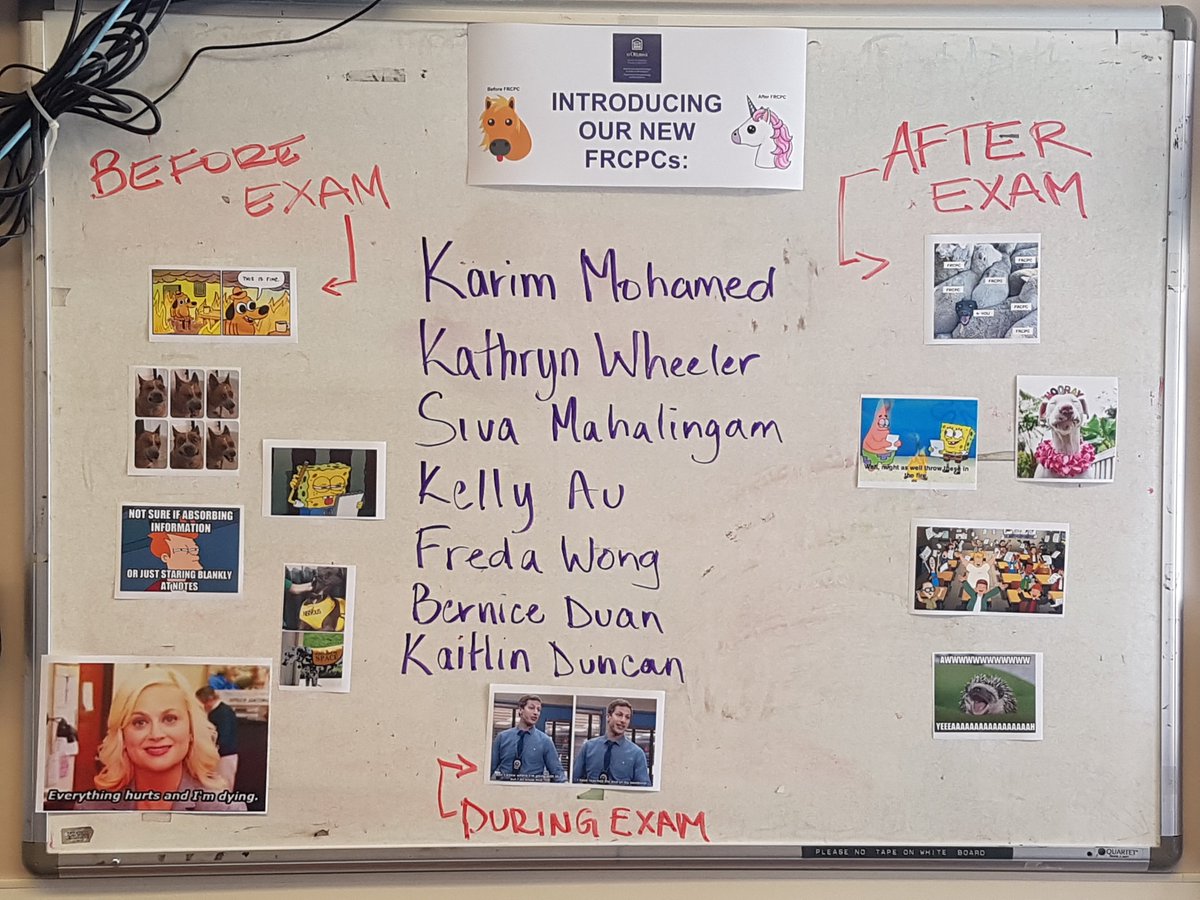 Before FRCPC
After FRCPC
INTRODUCING
OUR NEW
FRCPCs:
BEFORE
EXAM
AFTER
EXAM
Karim Mohamed
Kathryn Wheeler
Siva Mahalingam
Kelly Au
Freda Wong
Bernice Duan
Kaitlin Duncan
THIS IS FINE.
NOT SURE IF ABSORBING
INFORMATION
OR JUST STARING BLANKLY
AT NOTES
NERVOUS
SPACE
Everything hurts and I'm dying.
DURING EXAM
FRCPC
FRCPC
FRCPC
FRCPC
FRCPC
FRCPC
YOU
HOORAY
Well, might as well throw these in
the fire.
AWWWWWWWWWWW
YEEEAAAAAAAAAAAAAAAAAH
PLEASE NO TAPE ON WHITE BOARD
QUARTET